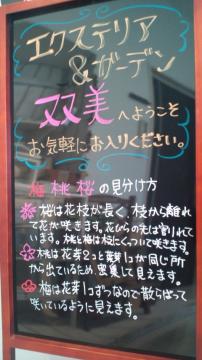 エクステリア
&ガーデン
双美へようこそ
お気軽にお入りください。
梅桃桜の見分け方
桜は花枝が長く、枝から離れ
て花が咲きます。花びらの先は割れて
います。桃と梅は枝にくっついて咲きます。
桃は花芽2つと葉芽1つが同じ所
から出ているため、密集して見えます。
梅は花芽1つずつなので散らばって
咲いているように見えます。